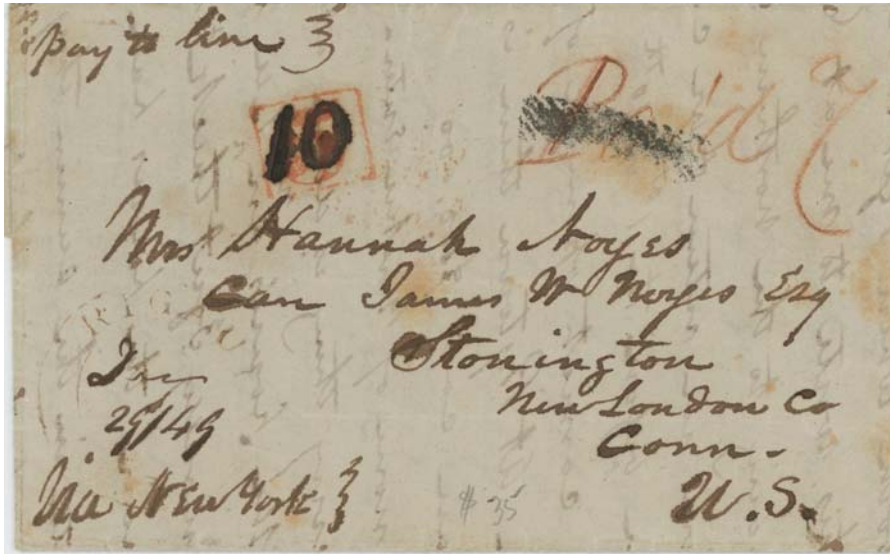 pay'd to line
10
Pai'd 7
Mrs Hannah Noyes
Care James W Noyes Esq
Stonington
New London Co
Conn.
U.S.
RIG
Dec
29/49
Via New York
$35